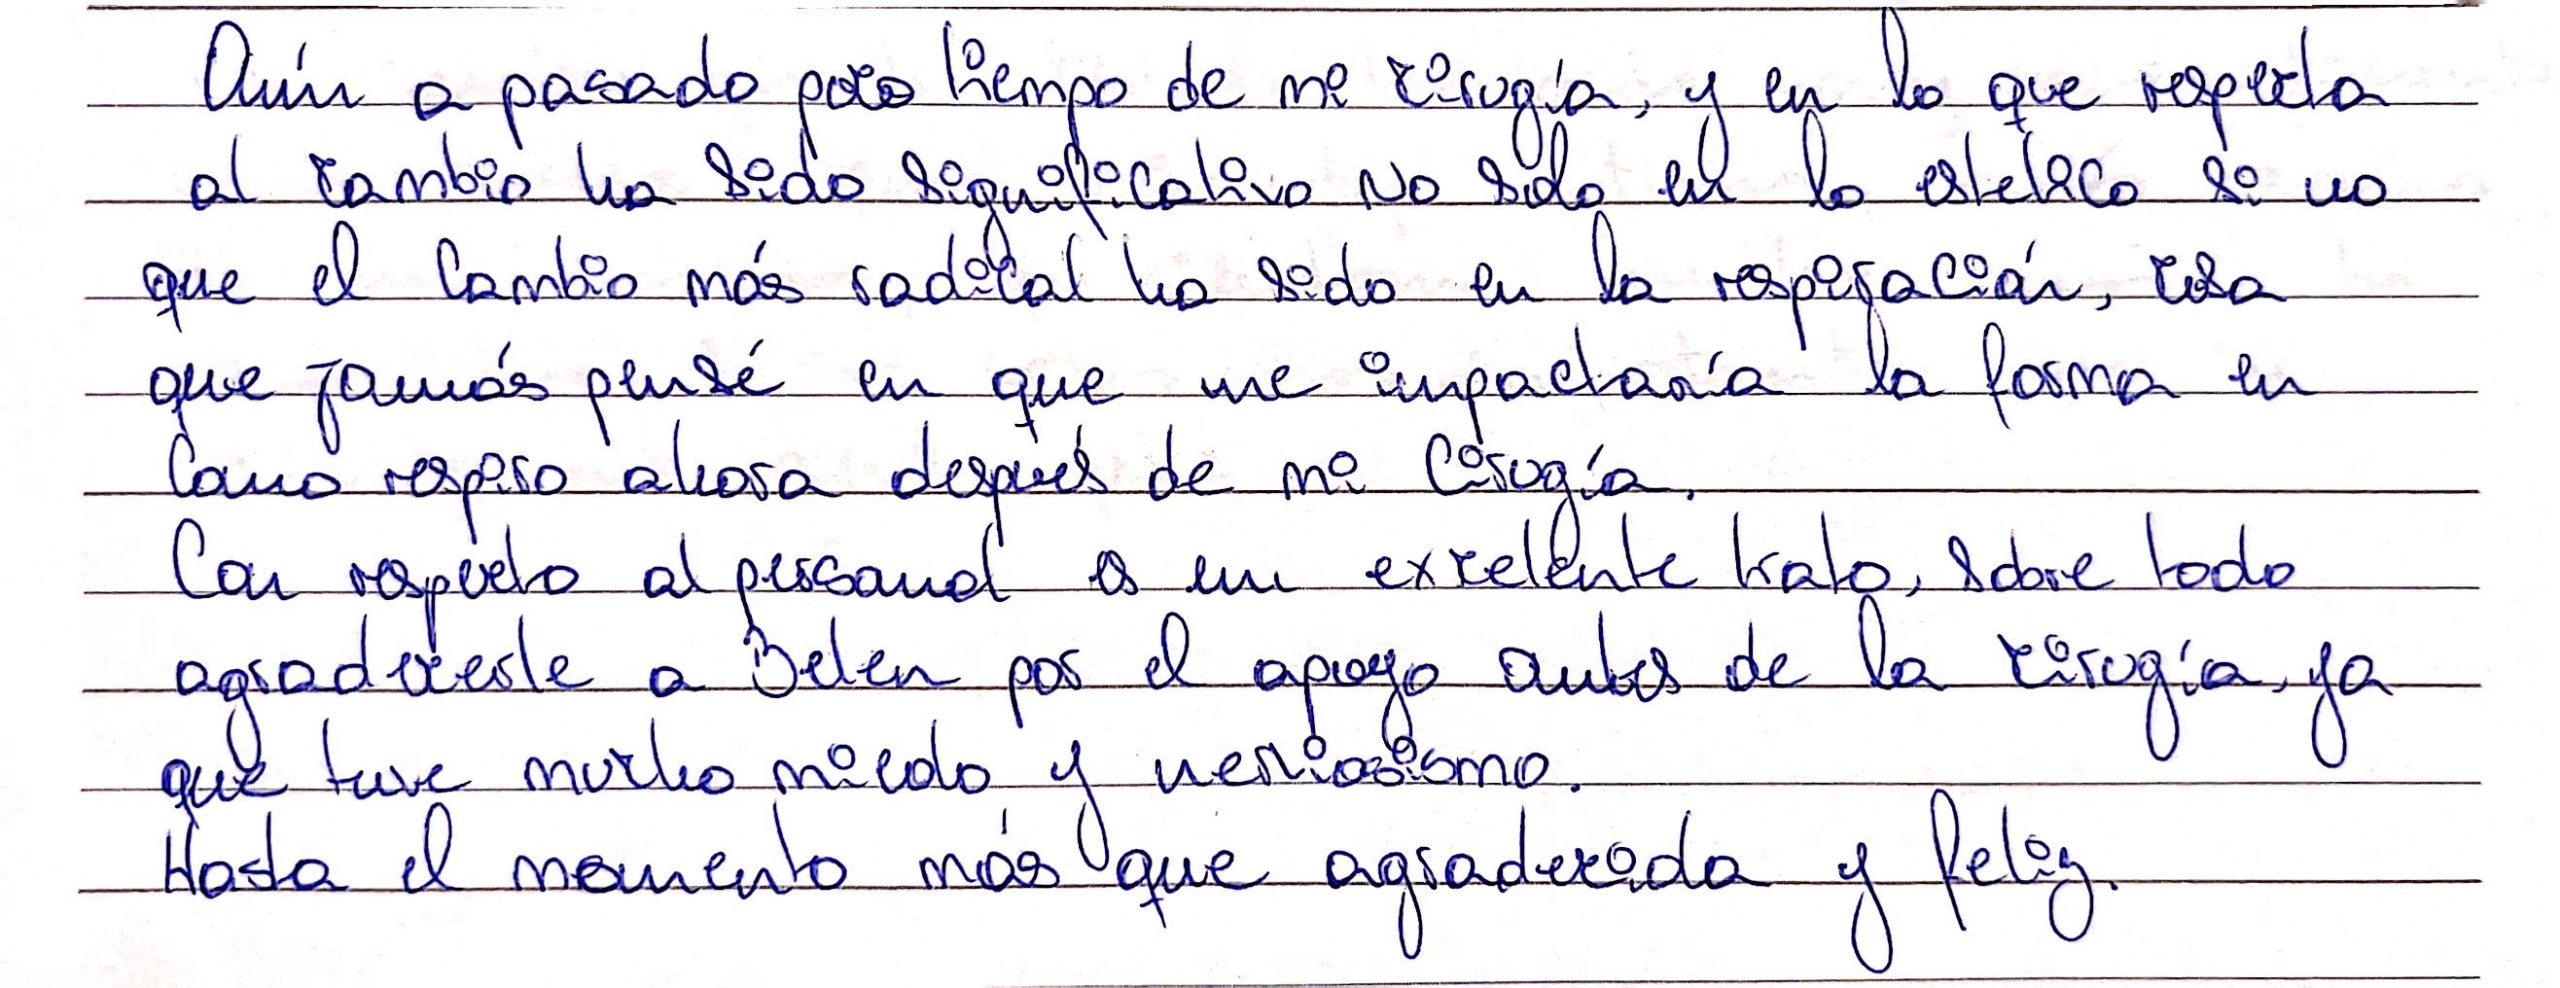 Aún a pasado poco tiempo de mi cirugía, y en lo que respecta
al cambio ha sido significativo no solo en lo estetico si no
que el cambio más radical ha sido en la respiración, cosa
que jamás pensé en que me impactaría la forma en
como respiro ahora después de mi cirugía.
Con respecto al personal es un excelente trato, sobre todo
agradecerle a Belen por el apoyo antes de la cirugía, ya
que tuve mucho miedo y nerviosismo.
Hasta el momento más que agradecida y feliz.